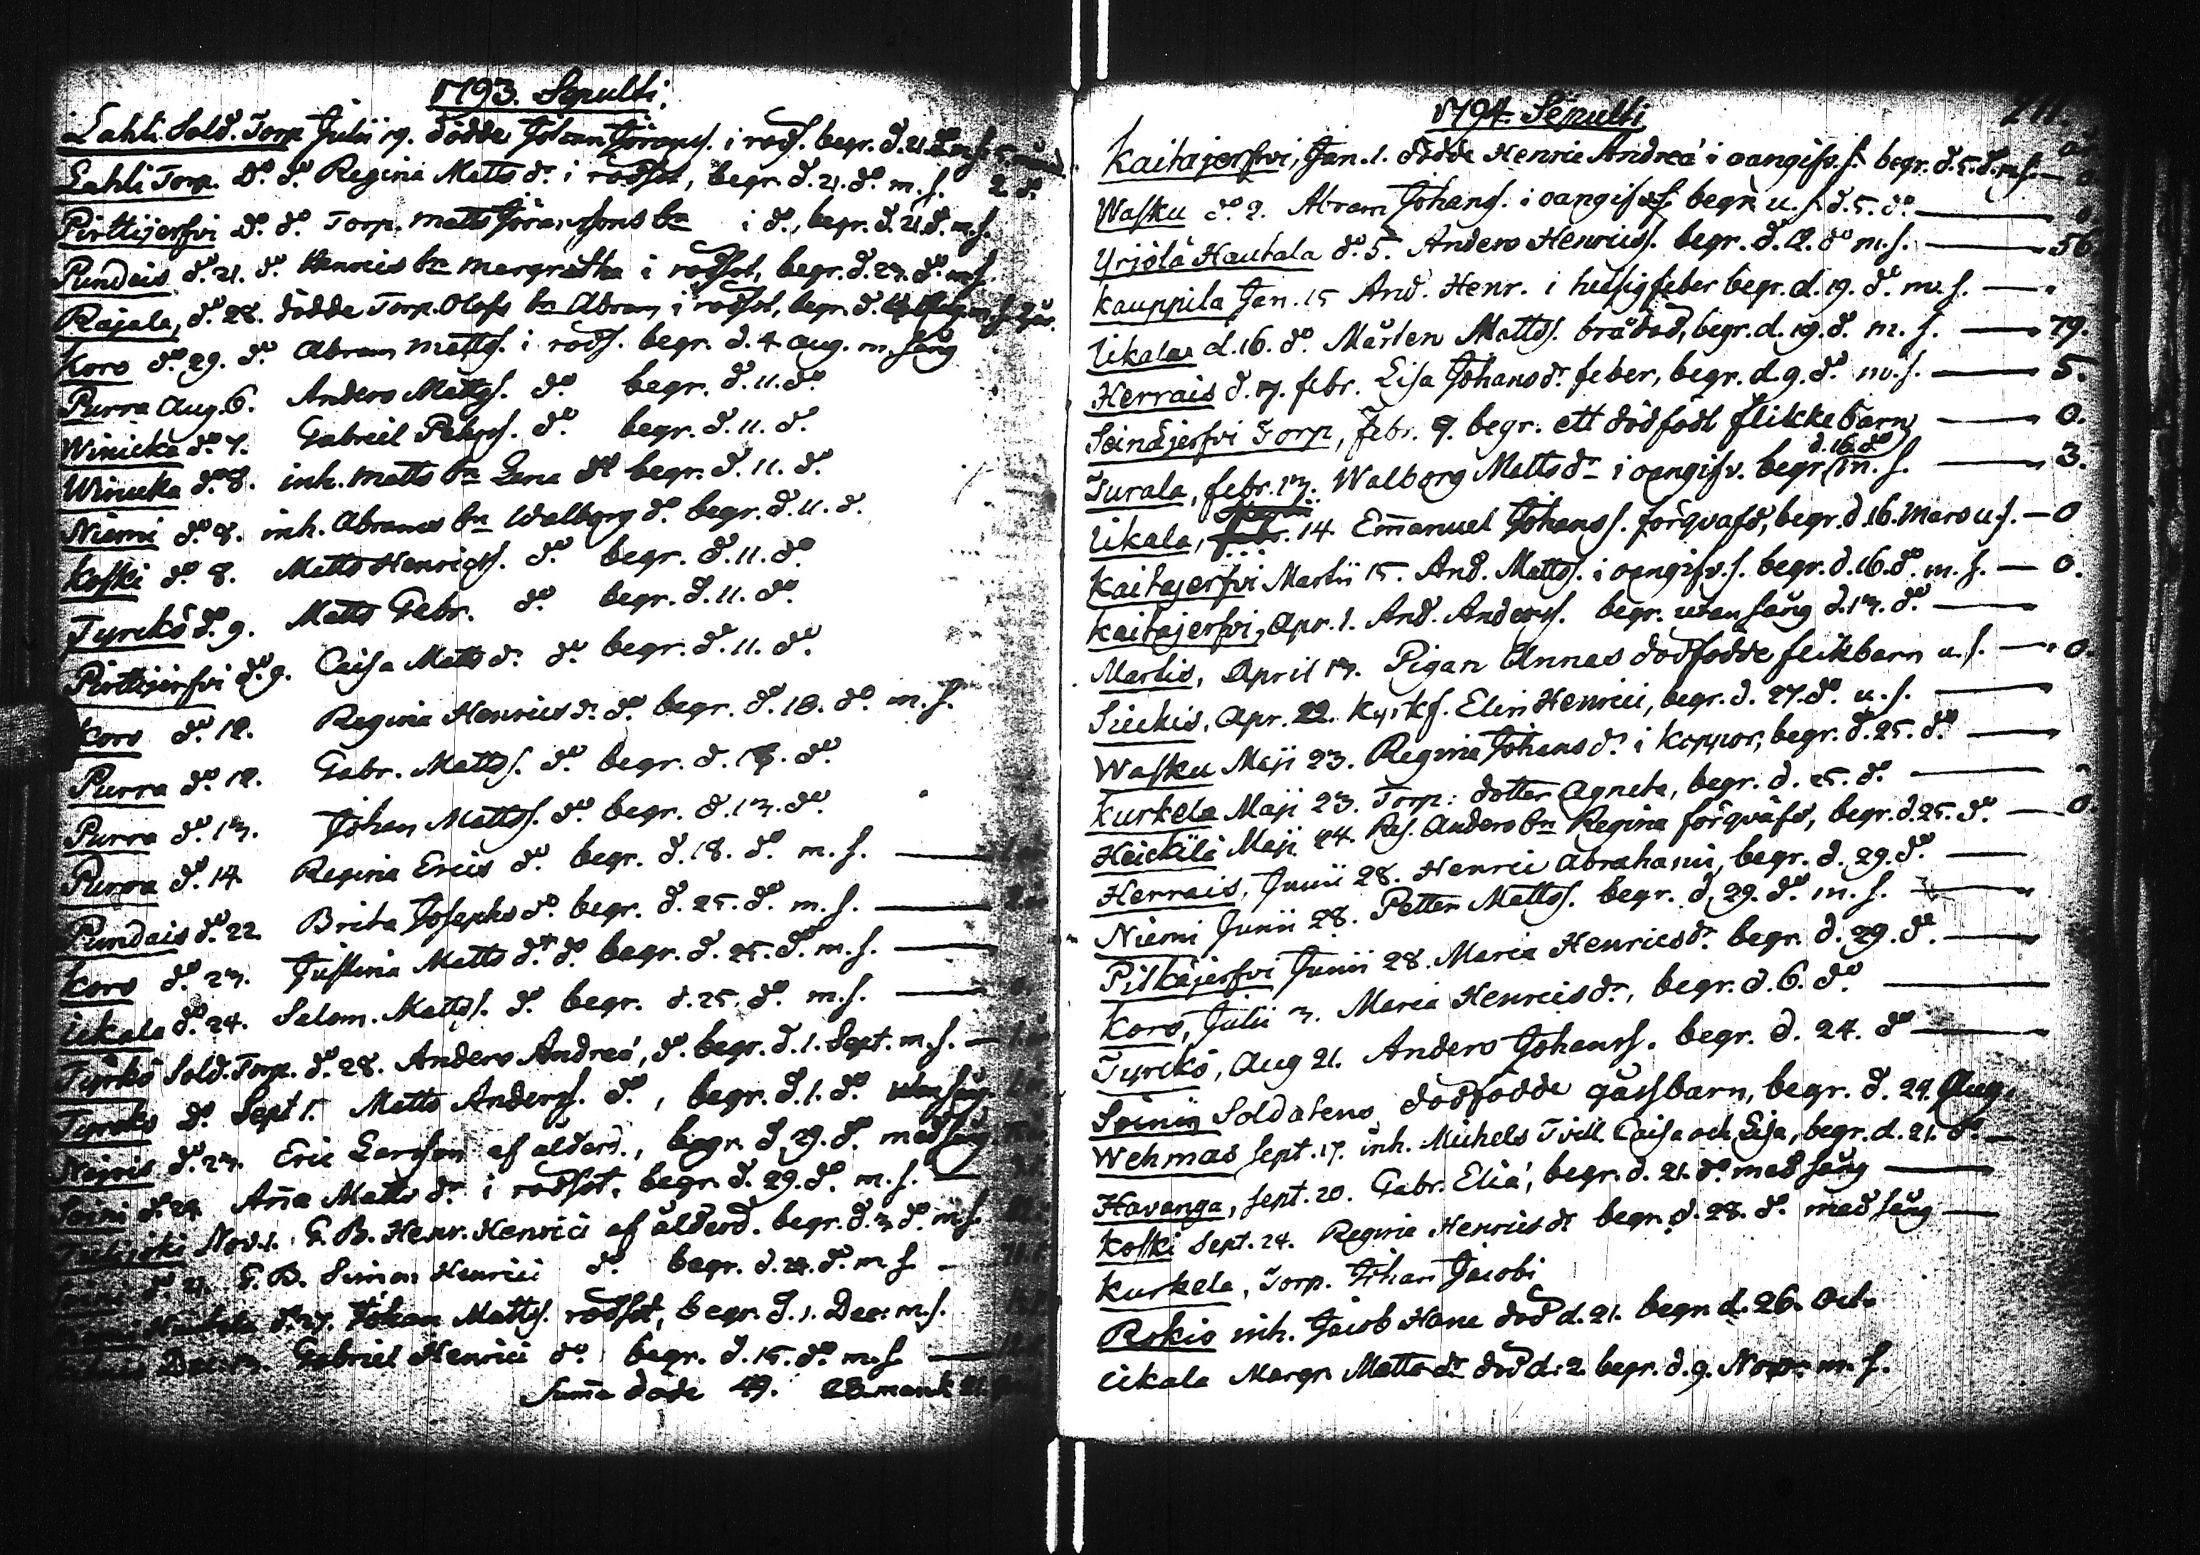 1793. Sepulti.
Lahti Sold. Torp Julii 19. dödde Johan Jöranss. i rods. begr. d. 21. do m. s.
Lahti Torp. do do Regina Matts dr i rodsot, begr. d. 21. do m. s. 2. do
Pirttijerfvi do do Torp. Matts Göranssons bn i do, begr. d. 21. do m. s.
Pundais do 21. do Henrics bn Margretha i rodsot, begr. d. 23. do m. s.
Rajala, do 28. dödde Torp. Olofs bn Abram i rodsot, begr. d.
Koro do 29. do Abram Mattss. i rods. begr. d. 4 Aug. m. sång
Purra Aug. 6. Anders Mattss. do begr. d. 11. do
Winicka do 7. Gabriel Pehrss. do begr. d. 11. do
Winicka do 8. inh. Matts bn Lena do begr. d. 11. do
Niemi do 8. inh. Abrams bn Walborg do begr. d. 11. d.
Koski do 8. Matts Henricss. do begr. d. 11. do
Tyrckö d. 9. Matts Gabr. do begr. d. 11. do
Pirttijerfvi do 9. Caisa Matts dr do begr. d. 11. do
Koro do 12. Regina Henrics dr do begr. d. 18. do m. s.
Purra do 12. Gabr. Mattss. do begr. d. do
Purra do 13. Johan Mattss. do begr. d. 13. do
Purra do 14. Regina Erics do begr. d. 18. do m. s.
Pundais do 22. Brita Josephs do begr. d. 25. do m. s.
Koro do 23. Justina Matts dr do begr. d. 25. do m. s.
Uckala do 24. Salom. Mattss. do begr. d. 25. do m. s.
Tyrkö Sold. Torp. do 28. Anders Andreæ, do begr. d. 1. Sept. m. s.
Tyrckö do Sept 1. Matts Anderss. do, begr. d. 1. do utan sång
d. 23. Eric Larsson af ålderd., begr. d. 29. do med sång
do 24 Anna Matts dr i rodsot, begr. d. 29. do m. s.
Nov. 1. G. B. Henr. Henrici af ålderd. begr. d. 3 do m. s.
do 21. G. B. Simon Henrici do begr. d. 24. do m. s.
Hautala d. 27. Johan Mattss. rodsot, begr. d. 1. Dec. m. s.
Dec. 13. Gabriel Henrici do begr. d. 15. do m. s.
Summa döde 49. 28 mank 21
1794. Sepulti
Kaitajerfvi, Jan. 1. dödde Henric Andreæ i oangifv. s. begr. d. 5. do m. s. 0
Wasku do 2. Abram Johanss. i oangif s. begr. u. s. d. 5. do 0
Yrjölä Hautala do 5. Anders Henricss. begr. d. 12. do m. s. 56
Kauppila Jan. 15 And. Henr. i hetsig feber begr. d. 19. do m. s.
Uckala d. 16. do Mårten Mattss. brådöd, begr. d. 19. do m. s. 79.
Herrais d. 7. febr. Lisa Johans dr feber, begr. d. 9. do m. s. 5.
Seinäjerfvi Torp, febr. 9. begr. ett dödfödt flikkebarn 0.
d. 16 do
Turala, febr. 13. Walborg Matts dr i oangifv. begr. m. s. 3.
Uckala, 14. Emanuel Johanss. förqvafd, begr. d 16. Mars u. s. 0
Kaitajerfvi Martii 15. And. Mattss. i oangifv. s. begr. d. 16. do m. s. 0.
Kaitajerfvi, Apr. 1. And. Anderss. begr. utan sång d. 13. do
Martis, April 13. Pigan Annas dödfödde flikbarn u. s. 0.
Sieckis, Apr. 22. Kyrkf. Elin Henrici, begr. d. 27. do u. s.
Wasku Maji 23. Regina Johans dr i koppor, begr. d. 25. do
Kurkela Maji 23. Torp: dotter Agneta, begr. d. 25. do
Heickilä Maji 24. Rs. Anders bn Regina förqväfd, begr. d. 25. do 0
Herrais, Junii 28. Henric Abrahami, begr. d. 29. do
Niemi Junii 28. Petter Mattss. begr. d. 29. do m. s.
Pitkäjerfvi Junii 28. Maria Henrics dr begr. d. 29. do
Koro, Julii 3. Maria Henrics dr, begr. d. 6. do
Tyrckö, Aug 21. Anders Johanss. begr. d. 24. do
Soinin Soldatens dödfödde gåssbarn, begr. d. 24. Aug.
Wehmas Sept. 17. inh. Michels Tvill. Caisa och Lisa, begr. d. 21. do
Havanga, Sept. 20. Gabr. Eliæ, begr. d. 21. do med sång
Koski Sept. 24. Regina Henrics dr begr. d. 28. do med sång
Kurkela, Torp. Johan Jacobi
Rokio inh. Jacob Hane död d. 21. begr. d. 26. Oct.
Uckala Margr. Matts dr död d. 2 begr. d. 9. Nov. m. s.